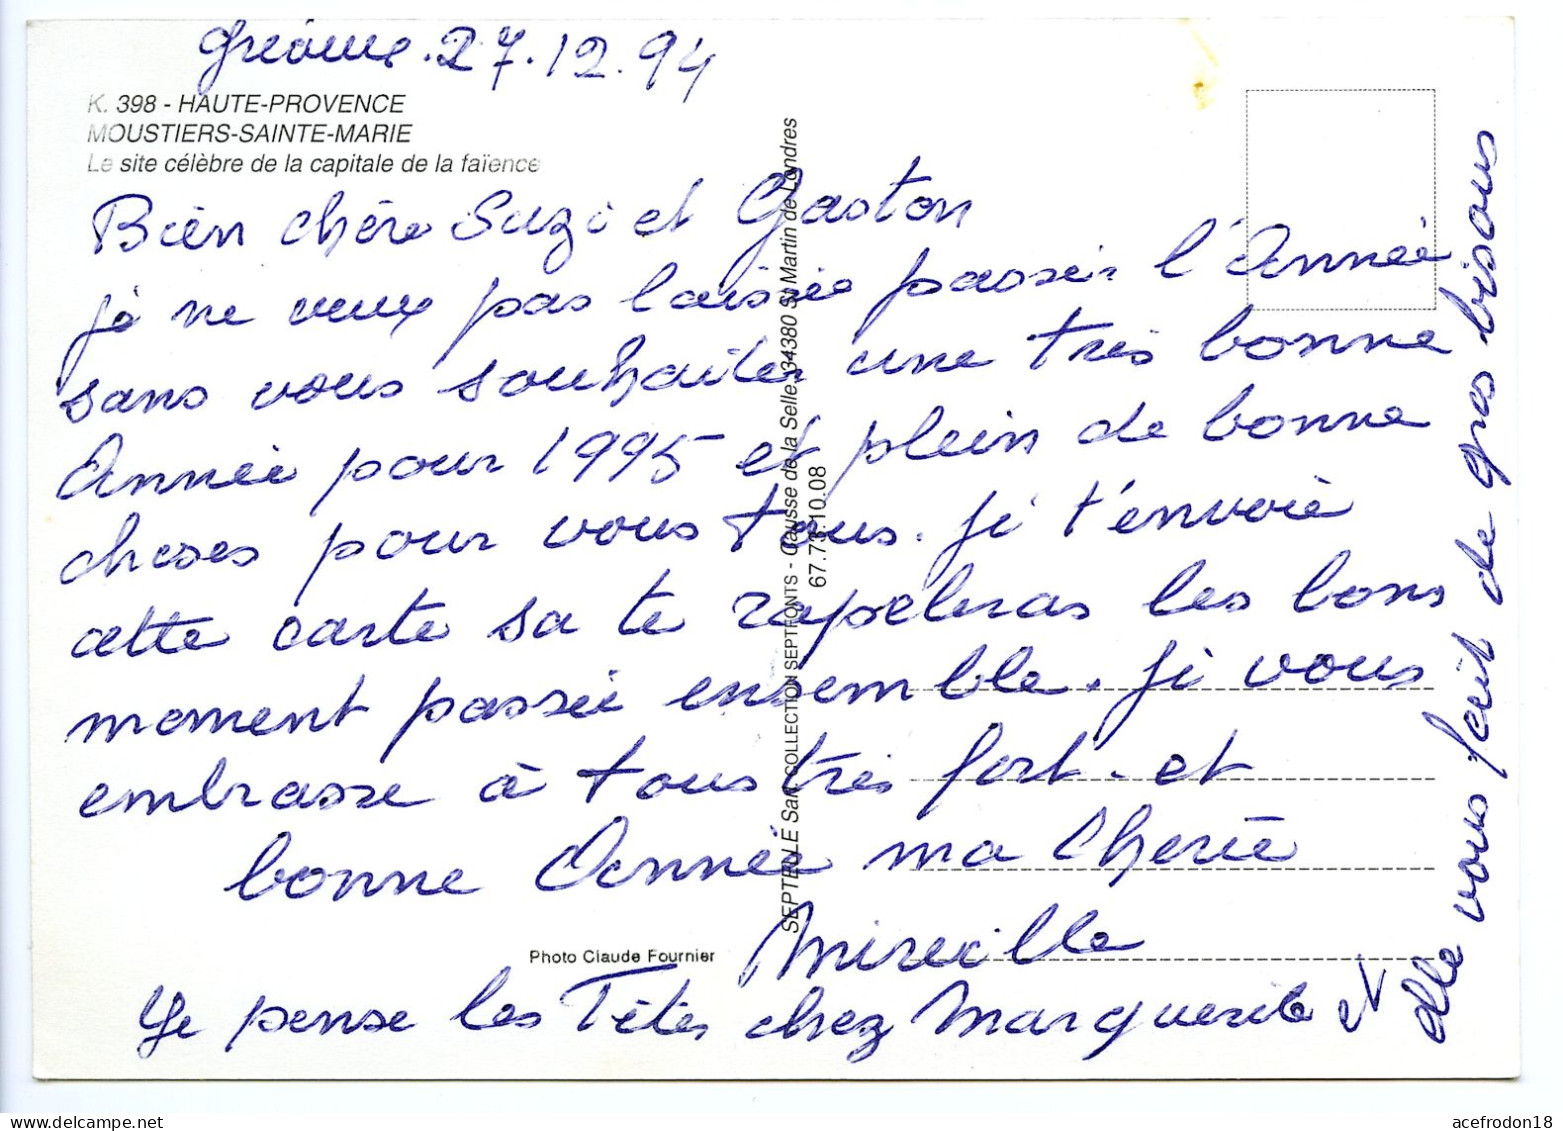 Gréoux. 27.12.94
K. 398 - HAUTE-PROVENCE
MOUSTIERS-SAINTE-MARIE
Le site célèbre de la capitale de la faïence
Bien chère Suzi et Gaston
je ne veux pas laissée passer l'Année
sans vous souhaiter une très bonne
Année pour 1995 et plein de bonne
choses pour vous tous. Je t'envoie
cette carte sa te rapeleras les bons
moment passée ensemble. Je vous
embrasse à tous très fort. et
bonne Année ma Cherie
Mireille
Je pense les Fêtes chez Marguerite et
elle vous fait de gros bisous
SEPTEILLE Sarl COLLECTION SEPTFONTS - Causse de la Selle 34380 St Martin de Londres
67.73.10.08
Photo Claude Fournier
acefrodon18